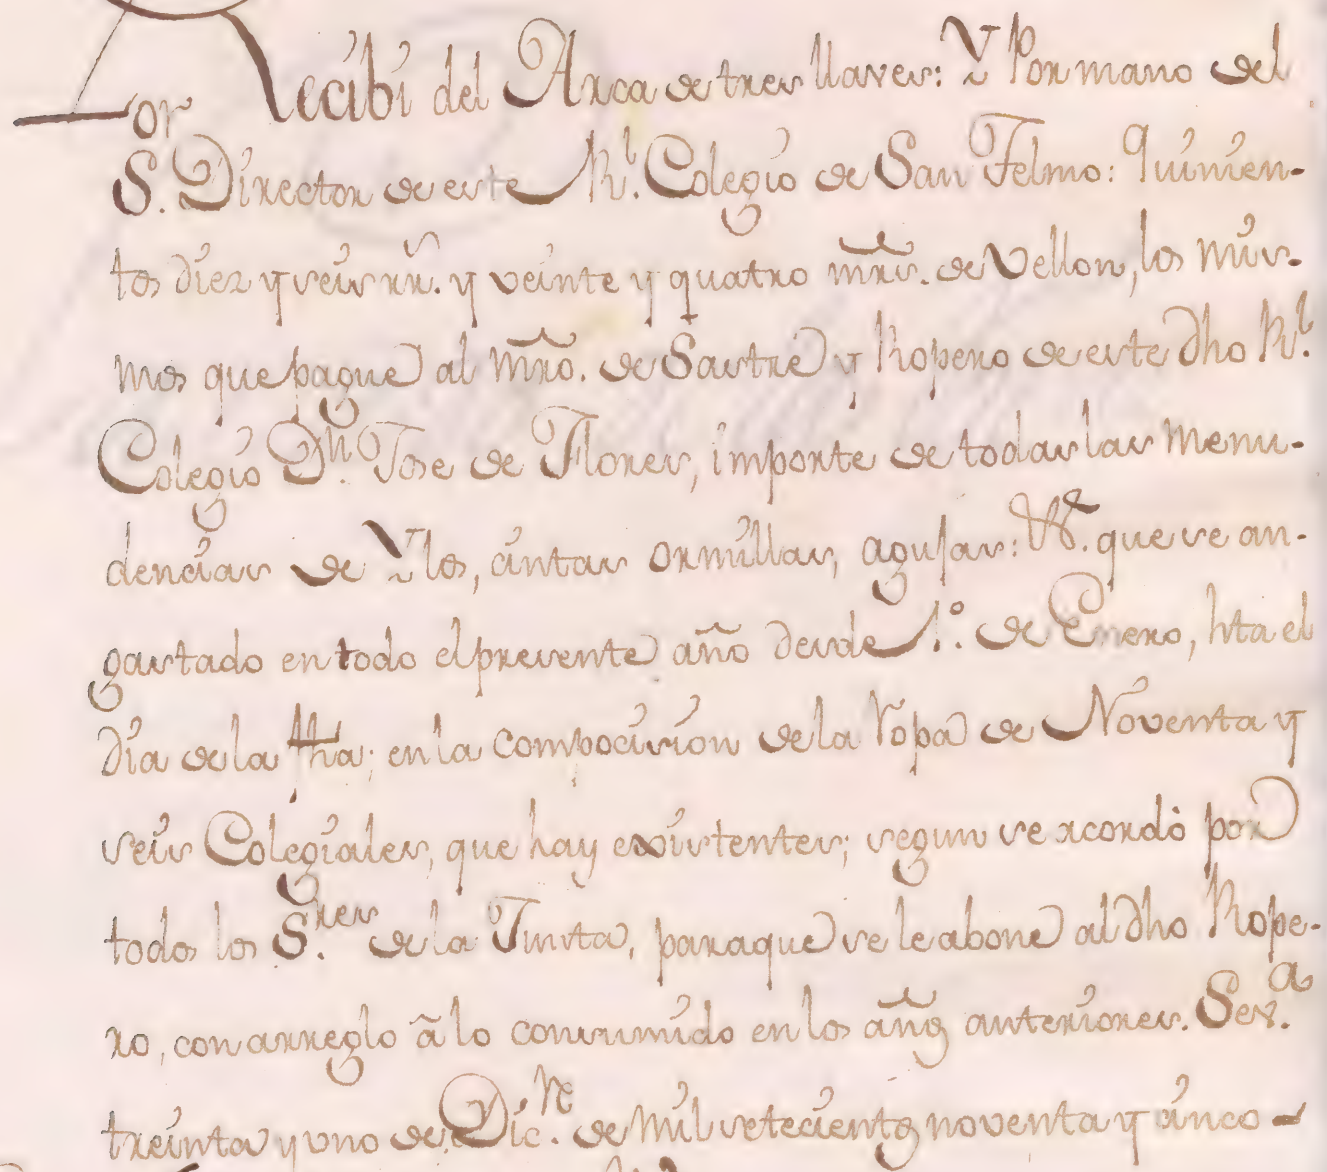 Recibi del Arca de tres llaves: Y Por mano del
S.or Director de este Rl. Colegio de San Telmo: quinien-
tos diez y seis rrs. y veinte y quatro mrs. de Vellon, los mis-
mos que pague al Mro. de Sastre y Ropero de este dho Rl.
Colegio Dn. Jose de Flores, importe de todas las menu-
dencias de Ylos, cintas ormillas, agujas: &a. que se an
gastado en todo el presente año desde 1.º de Enero, hta el
dia de la fha; en la compocision de la Ropa de Noventa y
seis Colegiales, que hay existentes; segun se acordò por
todos los S.res de la Junta, para que se le abone al dho Rope-
ro, con arreglo ã lo consumido en los años anteriores. Sev.a
treinta y uno de Dic.re de mil setecientos noventa y cinco -